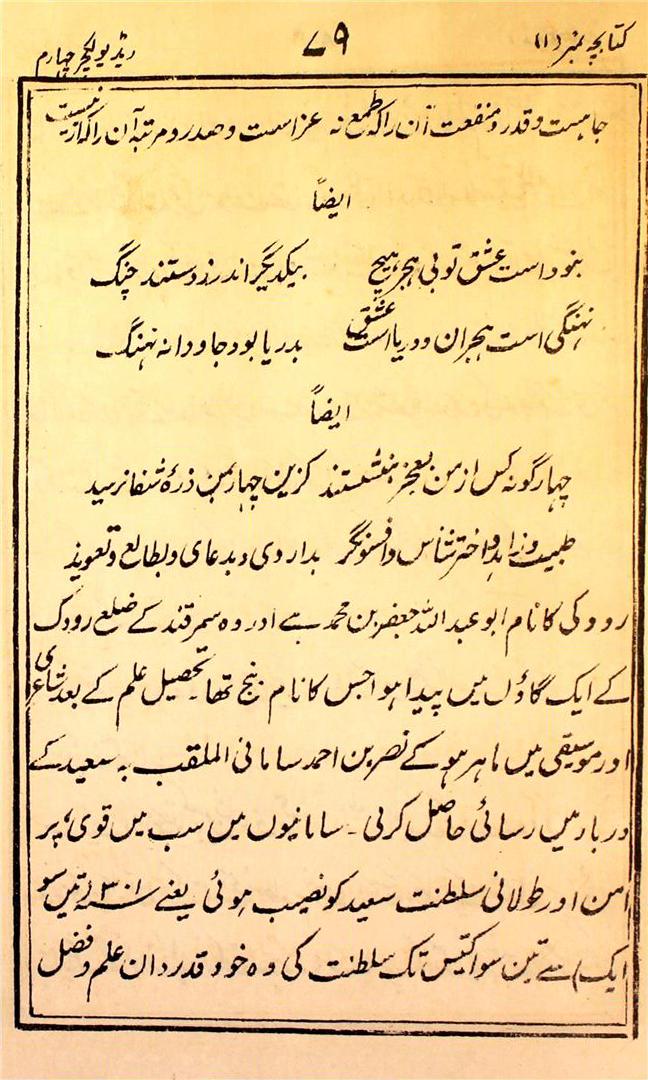 کتابچہ نمبر (۱) ۷۹ ریڈیو لکچر چہارم
جاہست و قدر و منفعت آن را کہ طمع نہ عزاست و صدر و مرتبہ آن را کہ از نیست
ایضاً
بنود است عشق تو بی ہجر ہیچ بیکدیگر اندر زدستند چنگ
نہنگی است ہجران و دریاست عشق بدریا بود جاودانہ نہنگ
ایضاً
چہار گونہ کس از من بعجز بنشستند کزین چہار بمن ذرۂ شفا نرسید
طبیب و زاہد و اختر شناس و افسونگر بداروی و بدعای و بطالع و تعویذ
رودکی کا نام ابو عبد اللہ جعفر بن محمد ہے اور وہ سمرقند کے ضلع رودک
کے ایک گاؤں میں پیدا ہوا جس کا نام بنج تھا۔ تحصیل علم کے بعد شاعری
اور موسیقی میں ماہر ہو کے نصر بن احمد سامانی الملقب بہ سعید کے
دربار میں رسائی حاصل کر لی۔ سامانیوں میں سب میں قوی، پر
امن اور طولانی سلطنت سعید کو نصیب ہوئی یعنے ۳۰۱ (تین سو
ایک) سے تین سو اکتیس تک سلطنت کی وہ خود قدردان علم و فضل